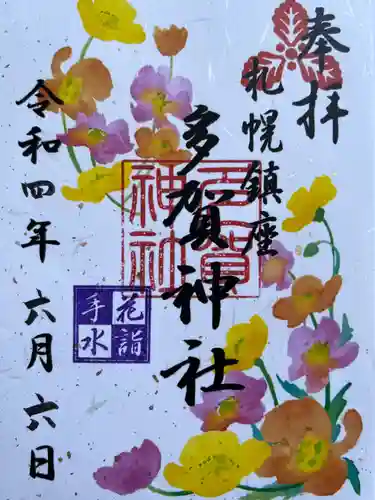 奉拝
札幌鎮座
多賀神社
多賀
神社
花詣
手水
令和四年 六月 六日